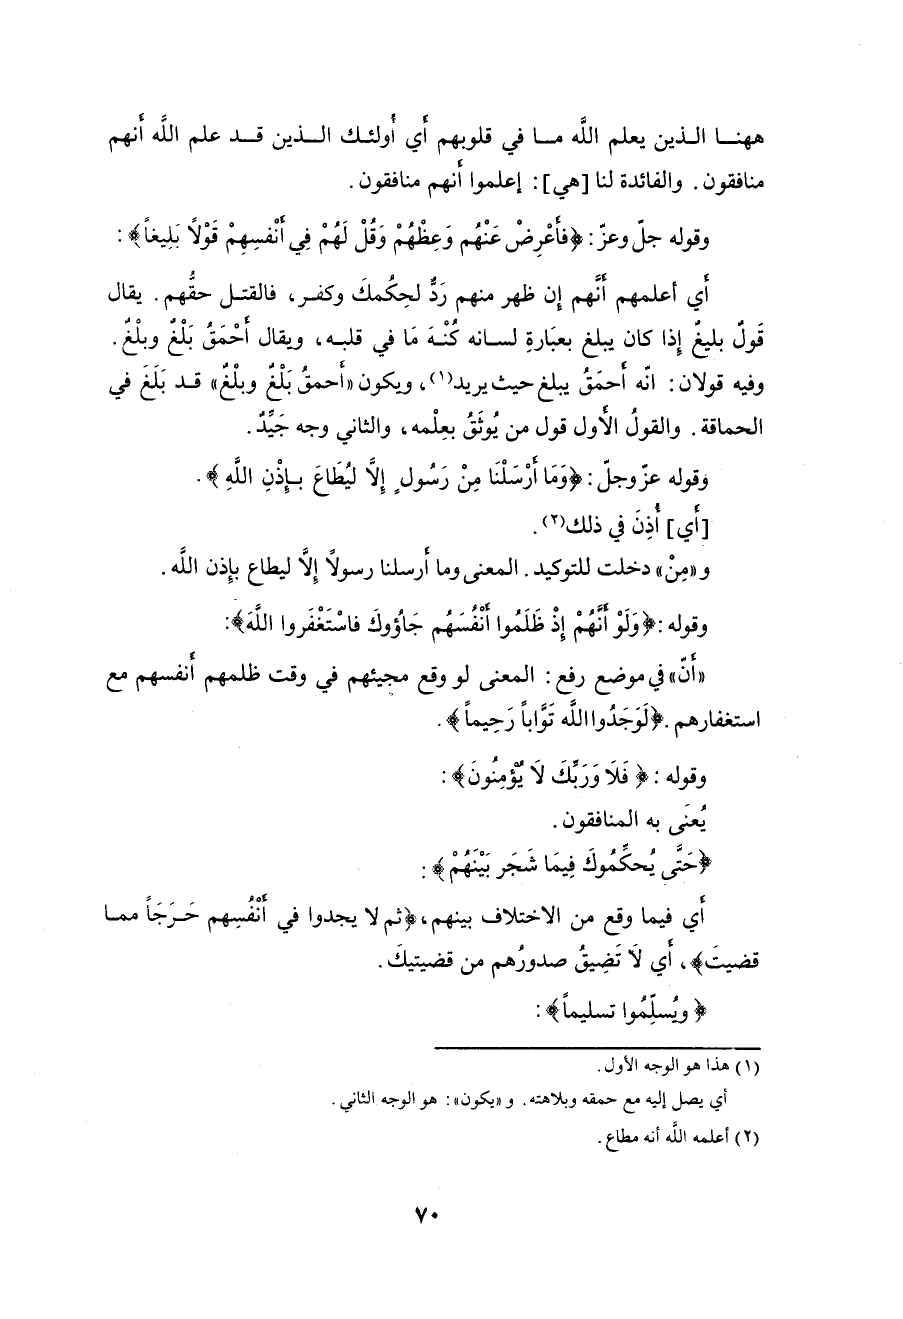 ههنا الذين يعلم اللَّه ما في قلوبهم أَي أُولئك الذين قد علم اللَّه أَنهم
منافقون. والفائدة لنا [هي]: إعلموا أَنهم منافقون.
وقوله جلّ وعزّ: ﴿فأَعْرِضْ عَنْهُم وَعِظْهُمْ وَقُلْ لَهُمْ فِي أَنْفسِهِمْ قَوْلاً بَلِيغاً﴾:
أَي أعلمهم أَنَّهم إن ظهر منهم رَدٌّ لحِكُمكَ وكفر، فالقتل حقُّهم. يقال
قَولٌ بليغٌ إذا كان يبلغ بعبَارةِ لسانه كُنْهَ مَا في قلبه، ويقال أَحْمَقُ بَلْغٌ وبلْغٌ.
وفيه قولان: انّه أَحمَقُ يبلغ حيث يريد(١)، ويكون «أَحمقُ بَلْغٌ وبلْغٌ» قد بَلَغَ في
الحماقة. والقولُ الأَول قول من يُوثَقُ بعِلْمه، والثاني وجه جَيِّدٌ.
وقوله عزّ وجلّ: ﴿وَمَا أَرْسَلْنَا مِنْ رَسُولٍ إِلَّا لِيُطَاعَ بِإِذْنِ اللَّهِ﴾.
[أَي] أُذِنَ في ذلك(٢).
و«مِنْ» دخلت للتوكيد. المعنى وما أَرسلنا رسولاً إِلَّا ليطاع بإِذن اللَّه.
وقوله: ﴿وَلَوْ أَنَّهُمْ إِذْ ظَلَمُوا أَنْفُسَهُم جَاؤُوكَ فاسْتَغْفَروا اللَّهَ﴾:
«أَنّ» في موضع رفع: المعنى لو وقع مجيئهم في وقت ظلمهم أَنفسهم مع
استغفارهم. ﴿لَوَجَدُوا اللَّه تَوَّاباً رَحِيماً﴾.
وقوله: ﴿فَلَا وَرَبِّكَ لَا يُؤْمِنُونَ﴾:
يُعنَى به المنافقون.
﴿حَتَّى يُحكِّمُوكَ فِيمَا شَجَر بَيْنَهُمْ﴾:
أَي فيما وقع من الاختلاف بينهم، ﴿ثم لا يجدوا في أَنْفُسِهم حَرَجَاً مما
قضيتَ﴾، أَي لَا تَضِيقُ صدورُهم من قضيتيكَ.
﴿ويُسلِّمُوا تسليماً﴾:
(١) هذا هو الوجه الأول.
أي يصل إليه مع حمقه وبلاهته. و«يكون»: هو الوجه الثاني.
(٢) أعلمه اللَّه أنه مطاع.
٧٠